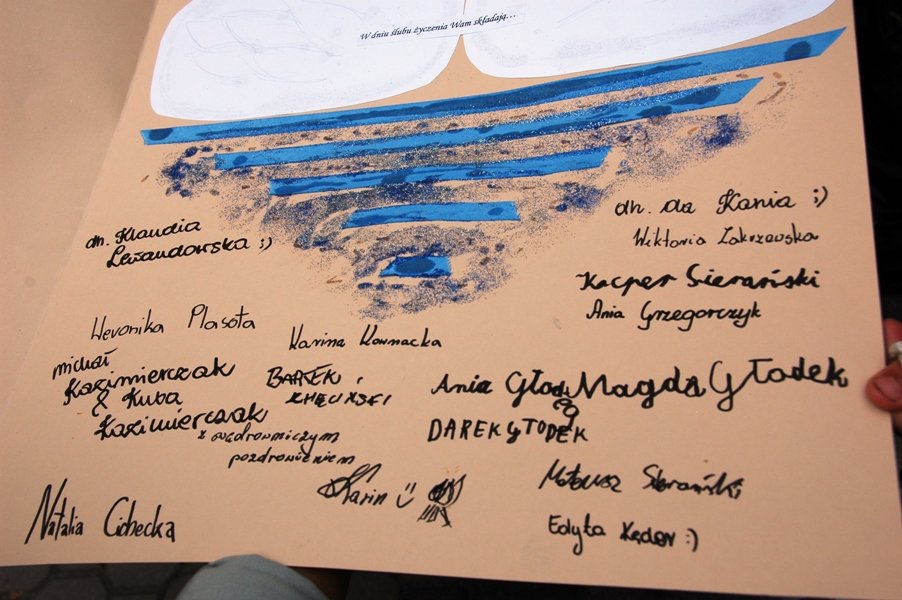 W dniu ślubu życzenia Wam składają...
dh. Klaudia
Lewandowska ;)
dh. da Kania ;)
Wiktoria Zakrzewska
Kacper Sierański
Ania Grzegorczyk
Weronika Plasota
Karina Kownacka
michał
Kazimierczak
& Kuba
Kazimierczak
z wędrowniczym
pozdrowieniem
BAREK
Ania Głodek
Magda Głodek
DAREK GŁODEK
Karin
Mateusz Sierański
Edyta Kędor :)
Natalia Cichecka